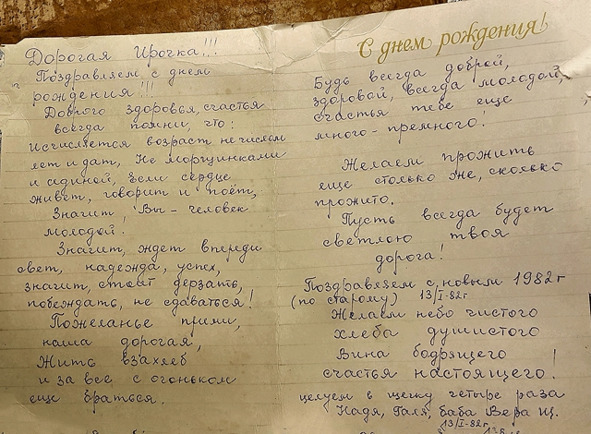 Дорогая Ирочка!!!
Поздравляем с днем
рождения!!!
Доброго здоровья, счастья
всегда помни, что:
исчисляется возраст не числом
лет и дат, Не морщинками
и сединой, Если сердце
живет, говорит и поёт,
Значит, Вы - человек
молодой.
Значит, ждет впереди
свет, надежда, успех,
значит, стоит дерзать,
побеждать, не сдаваться!
Пожеланье прими,
наша дорогая,
Жить взахлеб
и за все с огоньком
еще браться.
С днем рождения!
Будь всегда доброй,
здоровой, всегда молодой,
счастья тебе еще
много-премного!
Желаем прожить
еще столько же, сколько
прожито.
Пусть всегда будет
светлою твоя
дорога!
Поздравляем с новым 1982г
(по старому) 13/I-82г
Желаем небо чистого
хлеба душистого
Вина бодрящего
счастья настоящего!
целуем в щечку четыре раза
Надя, Галя, баба Вера Щ.
13/I-82г